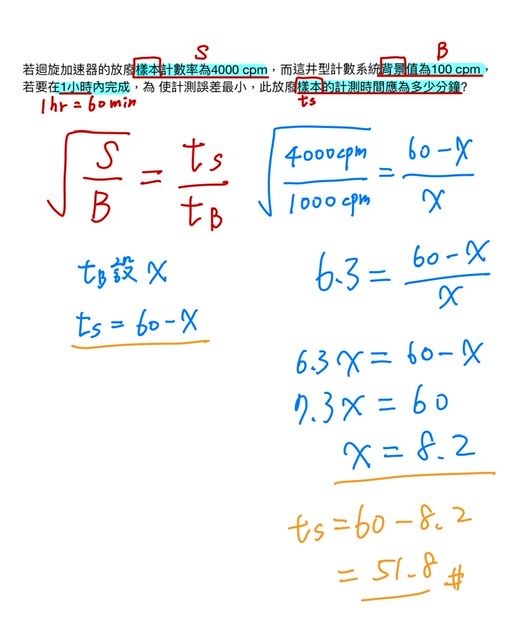 若迴旋加速器的放廢樣本計數率為4000 cpm，而這井型計數系統背景值為100 cpm，
S
B
若要在1小時內完成，為 使計測誤差最小，此放廢樣本的計測時間應為多少分鐘?
1 hr = 60 min
ts
√(S/B) = ts/tB
√(4000cpm/1000cpm) = (60-X)/X
tB 設 X
6.3 = (60-X)/X
ts = 60-X
6.3X = 60-X
7.3X = 60
X = 8.2
ts = 60-8.2
= 51.8 #